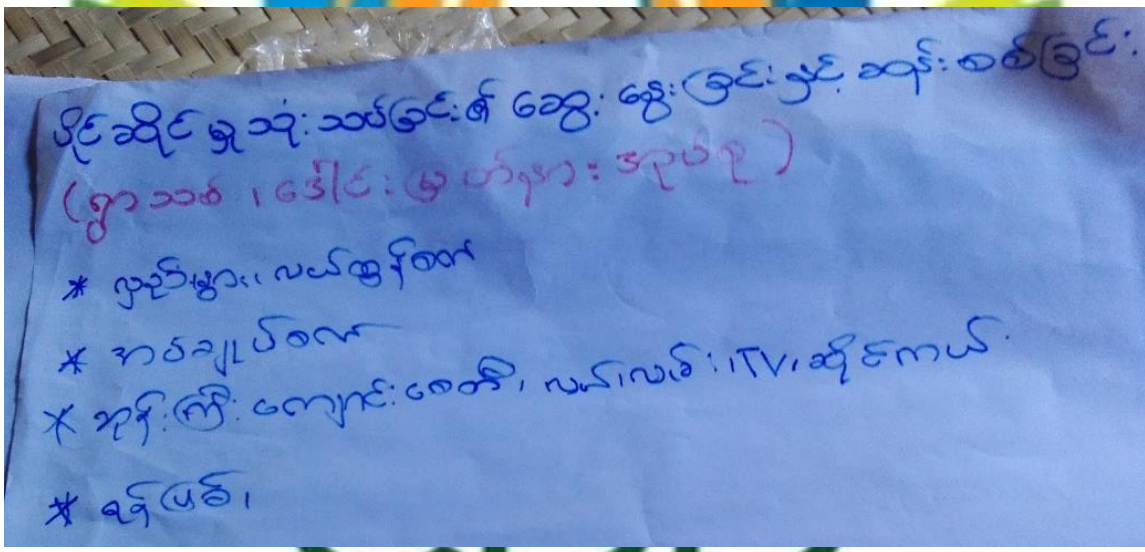 ပိုင်ဆိုင်မှု သုံးသပ်ခြင်း၏ ဆွေးနွေးခြင်းနှင့် ဆန်းစစ်ခြင်း
(ရွာသစ်၊ ဒေါင်းမြှပ်နား အုပ်စု)
* လှည်း၊နွား၊ လယ်ထွန်စက်
* အပ်ချုပ်စက်
* ဘုန်းကြီးကျောင်း စေတီ၊ လယ်၊လမ်း၊TV၊ ဆိုင်ကယ်
* ရန်ဖြစ်၊